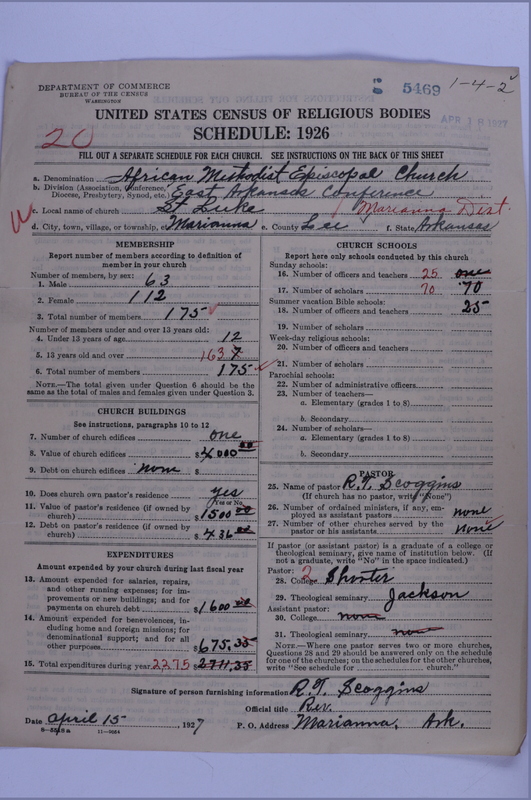 DEPARTMENT OF COMMERCE
BUREAU OF THE CENSUS
WASHINGTON
5469 1-4-2
APR 18 1927
UNITED STATES CENSUS OF RELIGIOUS BODIES
SCHEDULE: 1926
20
FILL OUT A SEPARATE SCHEDULE FOR EACH CHURCH. SEE INSTRUCTIONS ON THE BACK OF THIS SHEET
a. Denomination African Methodist Episcopal Church
b. Division (Association, Conference, Diocese, Presbytery, Synod, etc.) East Arkansas Conference
c. Local name of church St Luke Marianna Dist.
d. City, town, village, or township, etc. Marianna e. County Lee f. State Arkansas
MEMBERSHIP
Report number of members according to definition of
member in your church
Number of members, by sex:
1. Male 63
2. Female 112
3. Total number of members 175
Number of members under and over 13 years old:
4. Under 13 years of age 12
5. 13 years old and over 163
6. Total number of members 175
NOTE.—The total given under Question 6 should be the
same as the total of males and females given under Question 3.
CHURCH BUILDINGS
See instructions, paragraphs 10 to 12
7. Number of church edifices one
8. Value of church edifices $4000 00
9. Debt on church edifices none $
10. Does church own pastor's residence yes
Yes or No
11. Value of pastor's residence (if owned by
church) $1500 00
12. Debt on pastor's residence (if owned by
church) $436 00
EXPENDITURES
Amount expended by your church during last fiscal year
13. Amount expended for salaries, repairs,
and other running expenses; for im-
provements or new buildings; and for
payments on church debt $1600 00
14. Amount expended for benevolences, in-
cluding home and foreign missions; for
denominational support; and for all
other purposes $675,35
15. Total expenditures during year 2275 $2711,35
CHURCH SCHOOLS
Report here only schools conducted by this church
Sunday schools:
16. Number of officers and teachers 25 one
17. Number of scholars 70 70
Summer vacation Bible schools:
18. Number of officers and teachers 25
19. Number of scholars
Week-day religious schools:
20. Number of officers and teachers
21. Number of scholars
Parochial schools:
22. Number of administrative officers
23. Number of teachers—
a. Elementary (grades 1 to 8)
b. Secondary
24. Number of scholars—
a. Elementary (grades 1 to 8)
b. Secondary
PASTOR
25. Name of pastor R.T. Scoggins
(If church has no pastor, write "None")
26. Number of ordained ministers, if any, em-
ployed as assistant pastors none
27. Number of other churches served by the
pastor or his assistants none
If pastor (or assistant pastor) is a graduate of a college or
theological seminary, give name of institution below. (If
not a graduate, write "No" in the space indicated.)
Pastor:
28. College Shorter
29. Theological seminary Jackson
Assistant pastor:
30. College none
31. Theological seminary none
NOTE.—Where one pastor serves two or more churches,
Questions 28 and 29 should be answered only on the schedule
for one of the churches; on the schedules for the other churches,
write "See schedule for church."
Signature of person furnishing information R.T. Scoggins
Official title Rev.
Date april 15, 1927 P. O. Address Marianna, Ark.
11-9084